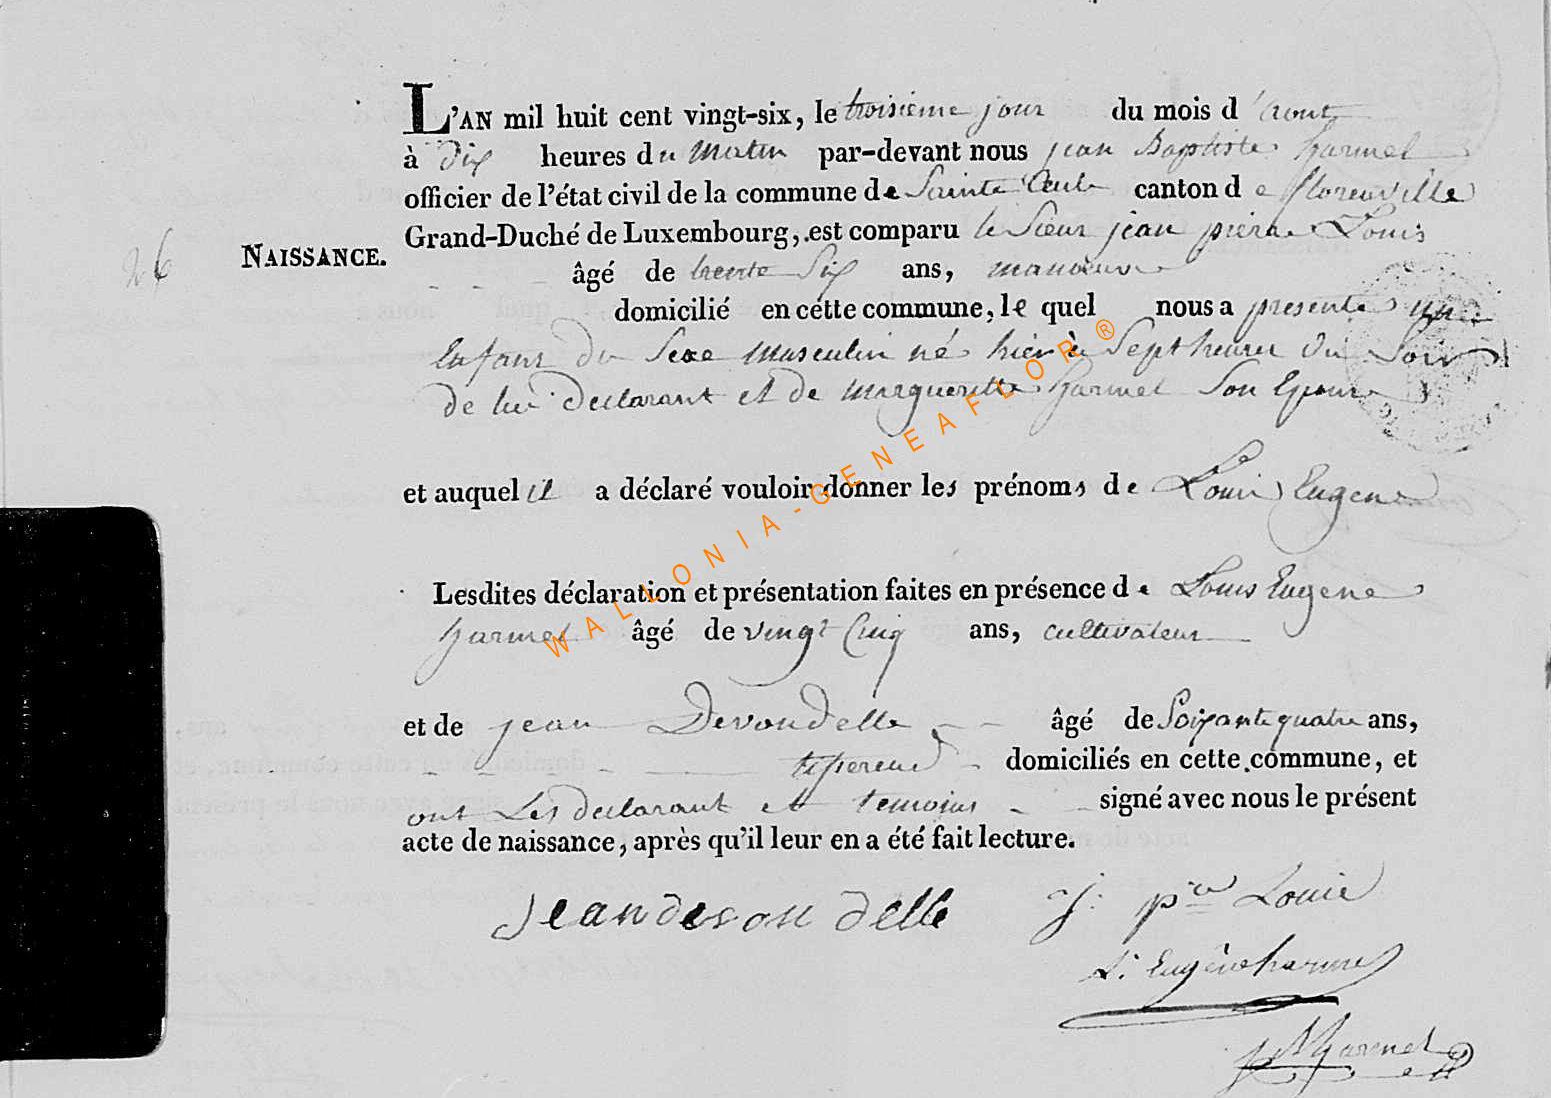 L'AN mil huit cent vingt-six, le troisieme jour du mois d'aout
à dix heures du matin par-devant nous jean Baptiste harmel
officier de l'état civil de la commune de Sainte Cecile canton de florenville
Grand-Duché de Luxembourg, est comparu le Sieur jean pierre Louis
26 NAISSANCE.
âgé de trente Six ans, manoeuvre
domicilié en cette commune, le quel nous a presenté un
Enfant du Sexe masculin né hier à Sept heures du Soir
de lui declarant et de margueritte harmel Son Epouse
et auquel il a déclaré vouloir donner les prénoms de Louis Eugene
Lesdites déclaration et présentation faites en présence de Louis Eugene
harmel âgé de vingt Cinq ans, cultivateur
et de jean Devondelle âgé de Soixante quatre ans,
tisserand domiciliés en cette commune, et
ont Les declarant et temoins signé avec nous le présent
acte de naissance, après qu'il leur en a été fait lecture.
Jean devondelle j: pre Louis
L: Eugène harmel
Jb harmel
WALLONIA-GENEAFLOR®